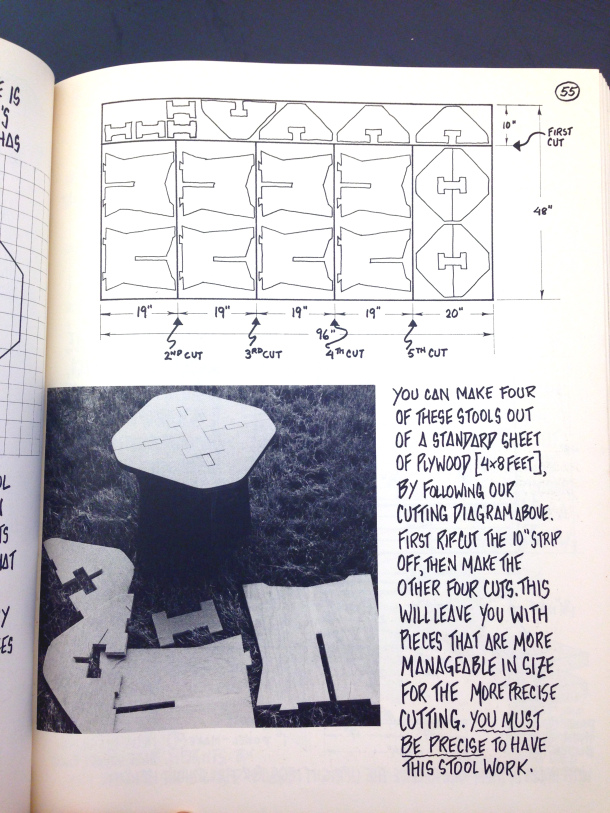 55
10"
FIRST
CUT
48"
19" 19" 19" 19" 20"
96"
2ND CUT 3RD CUT 4TH CUT 5TH CUT
YOU CAN MAKE FOUR
OF THESE STOOLS OUT
OF A STANDARD SHEET
OF PLYWOOD [4x8 FEET],
BY FOLLOWING OUR
CUTTING DIAGRAM ABOVE.
FIRST RIPCUT THE 10" STRIP
OFF, THEN MAKE THE
OTHER FOUR CUTS. THIS
WILL LEAVE YOU WITH
PIECES THAT ARE MORE
MANAGEABLE IN SIZE
FOR THE MORE PRECISE
CUTTING. YOU MUST
BE PRECISE TO HAVE
THIS STOOL WORK.
IS
HAS